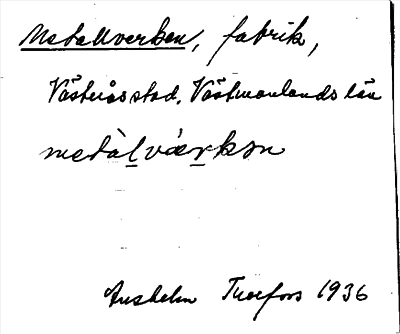 Metallverken, fabrik,
Västerås stad, Västmanlands län
metàl̲vær̲kən
Anshelm 1936